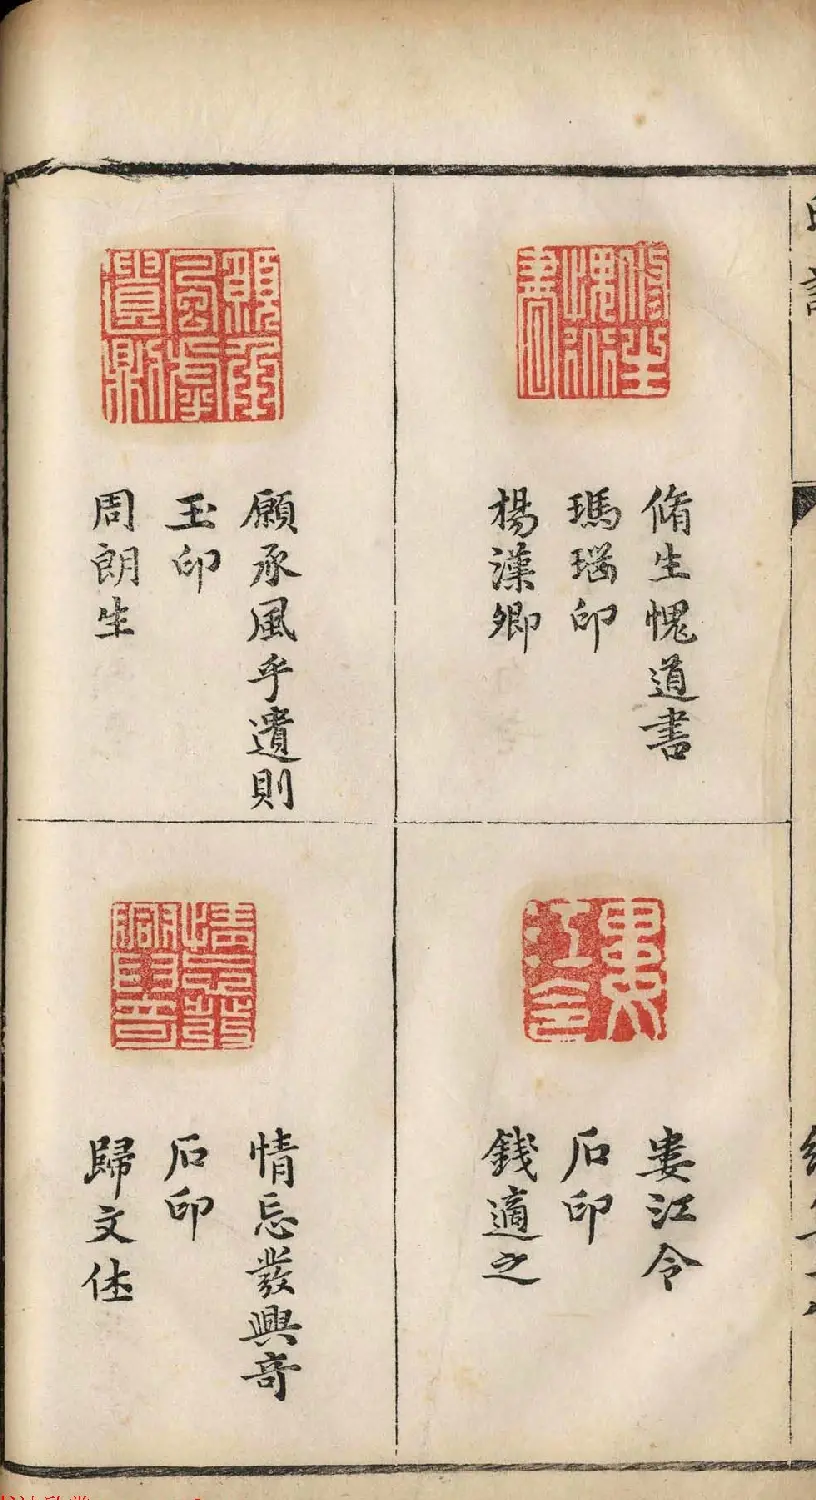 脩生愧道書
瑪瑙印
楊漢卿
婁江令
石印
錢適之
願承風乎遺則
玉印
周朗生
情忘發興奇
石印
歸文休